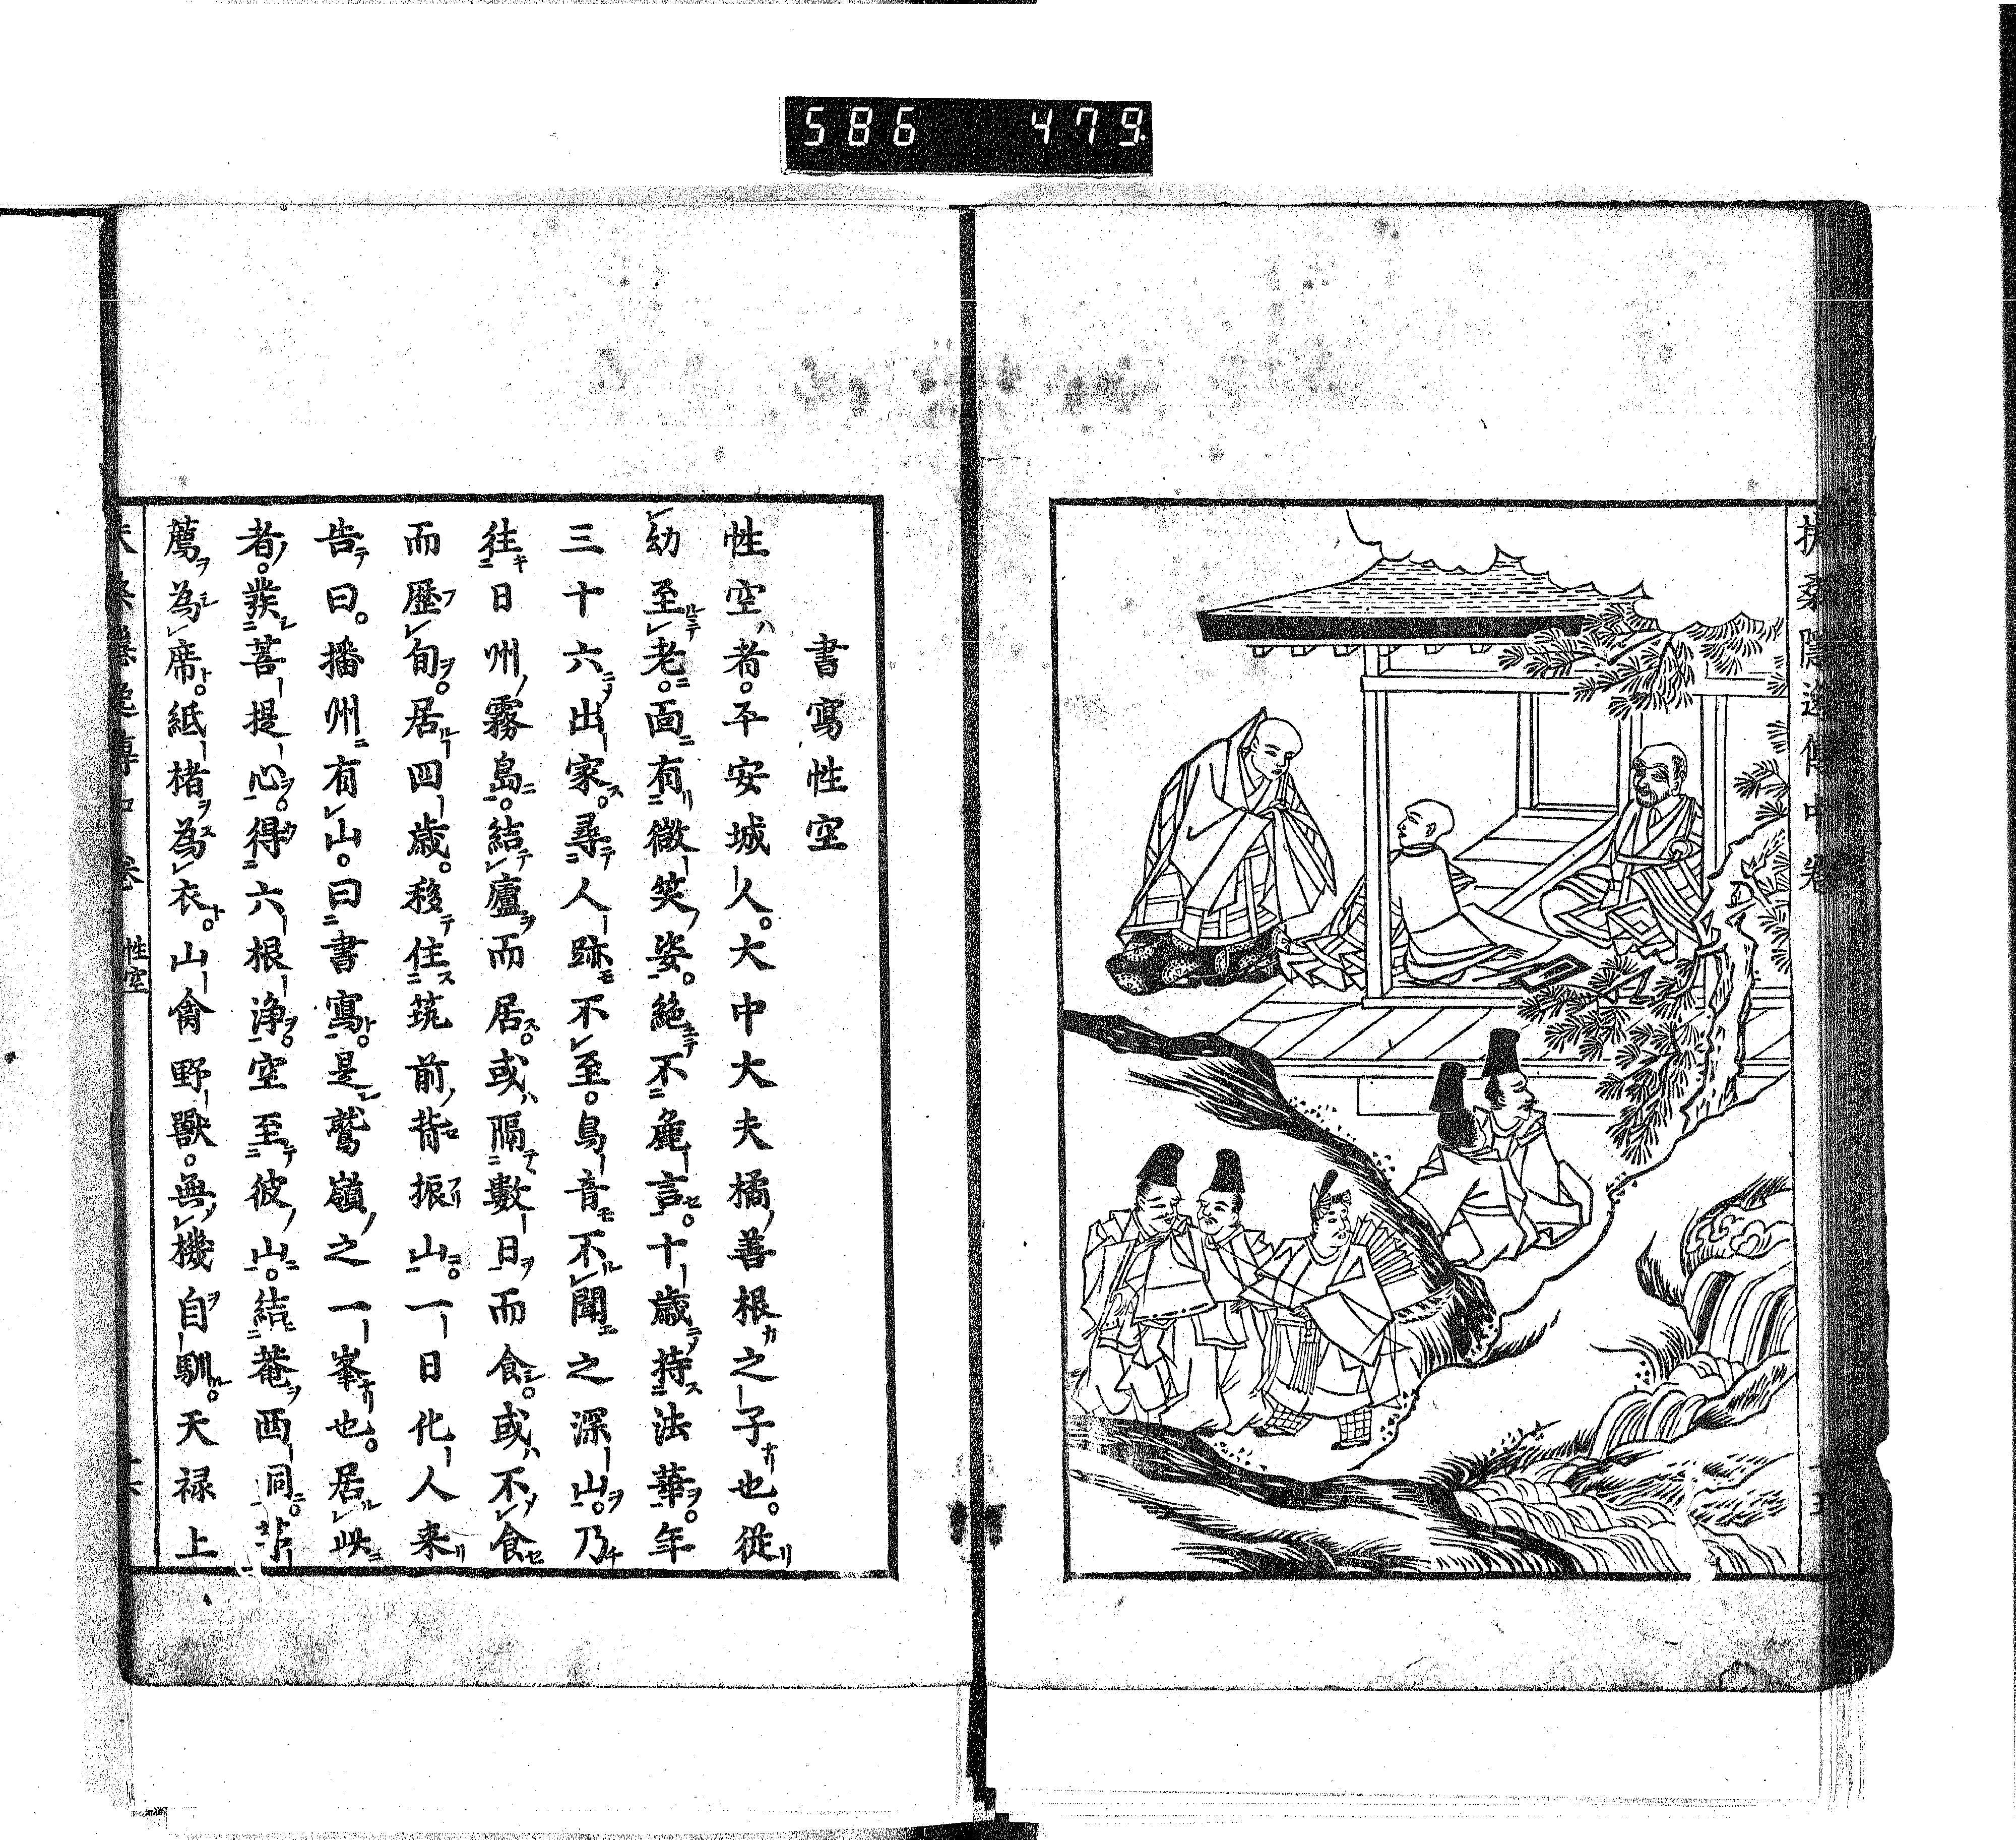 586 479
扶桑隠逸傳中卷
書寫性空
性空ハ者。平安城人。大中大夫橘善根之子也。従
幼至老。面有微笑姿。絶不麁言。十歳持法華。年
三十六出家。尋人跡不至。鳥音不聞之深山。乃
往日州霧島。結廬而居。或隔數日而食。或不食
而歴旬。居四歳。移住筑前背振山。一日化人来
告曰。播州有山。曰書寫。是鷲嶺之一峯也。居此
者。發菩提心。得六根浄。空至彼山。結菴西洞。
薦為席。紙楮為衣。山禽野獸。無機自馴。天禄上
性空